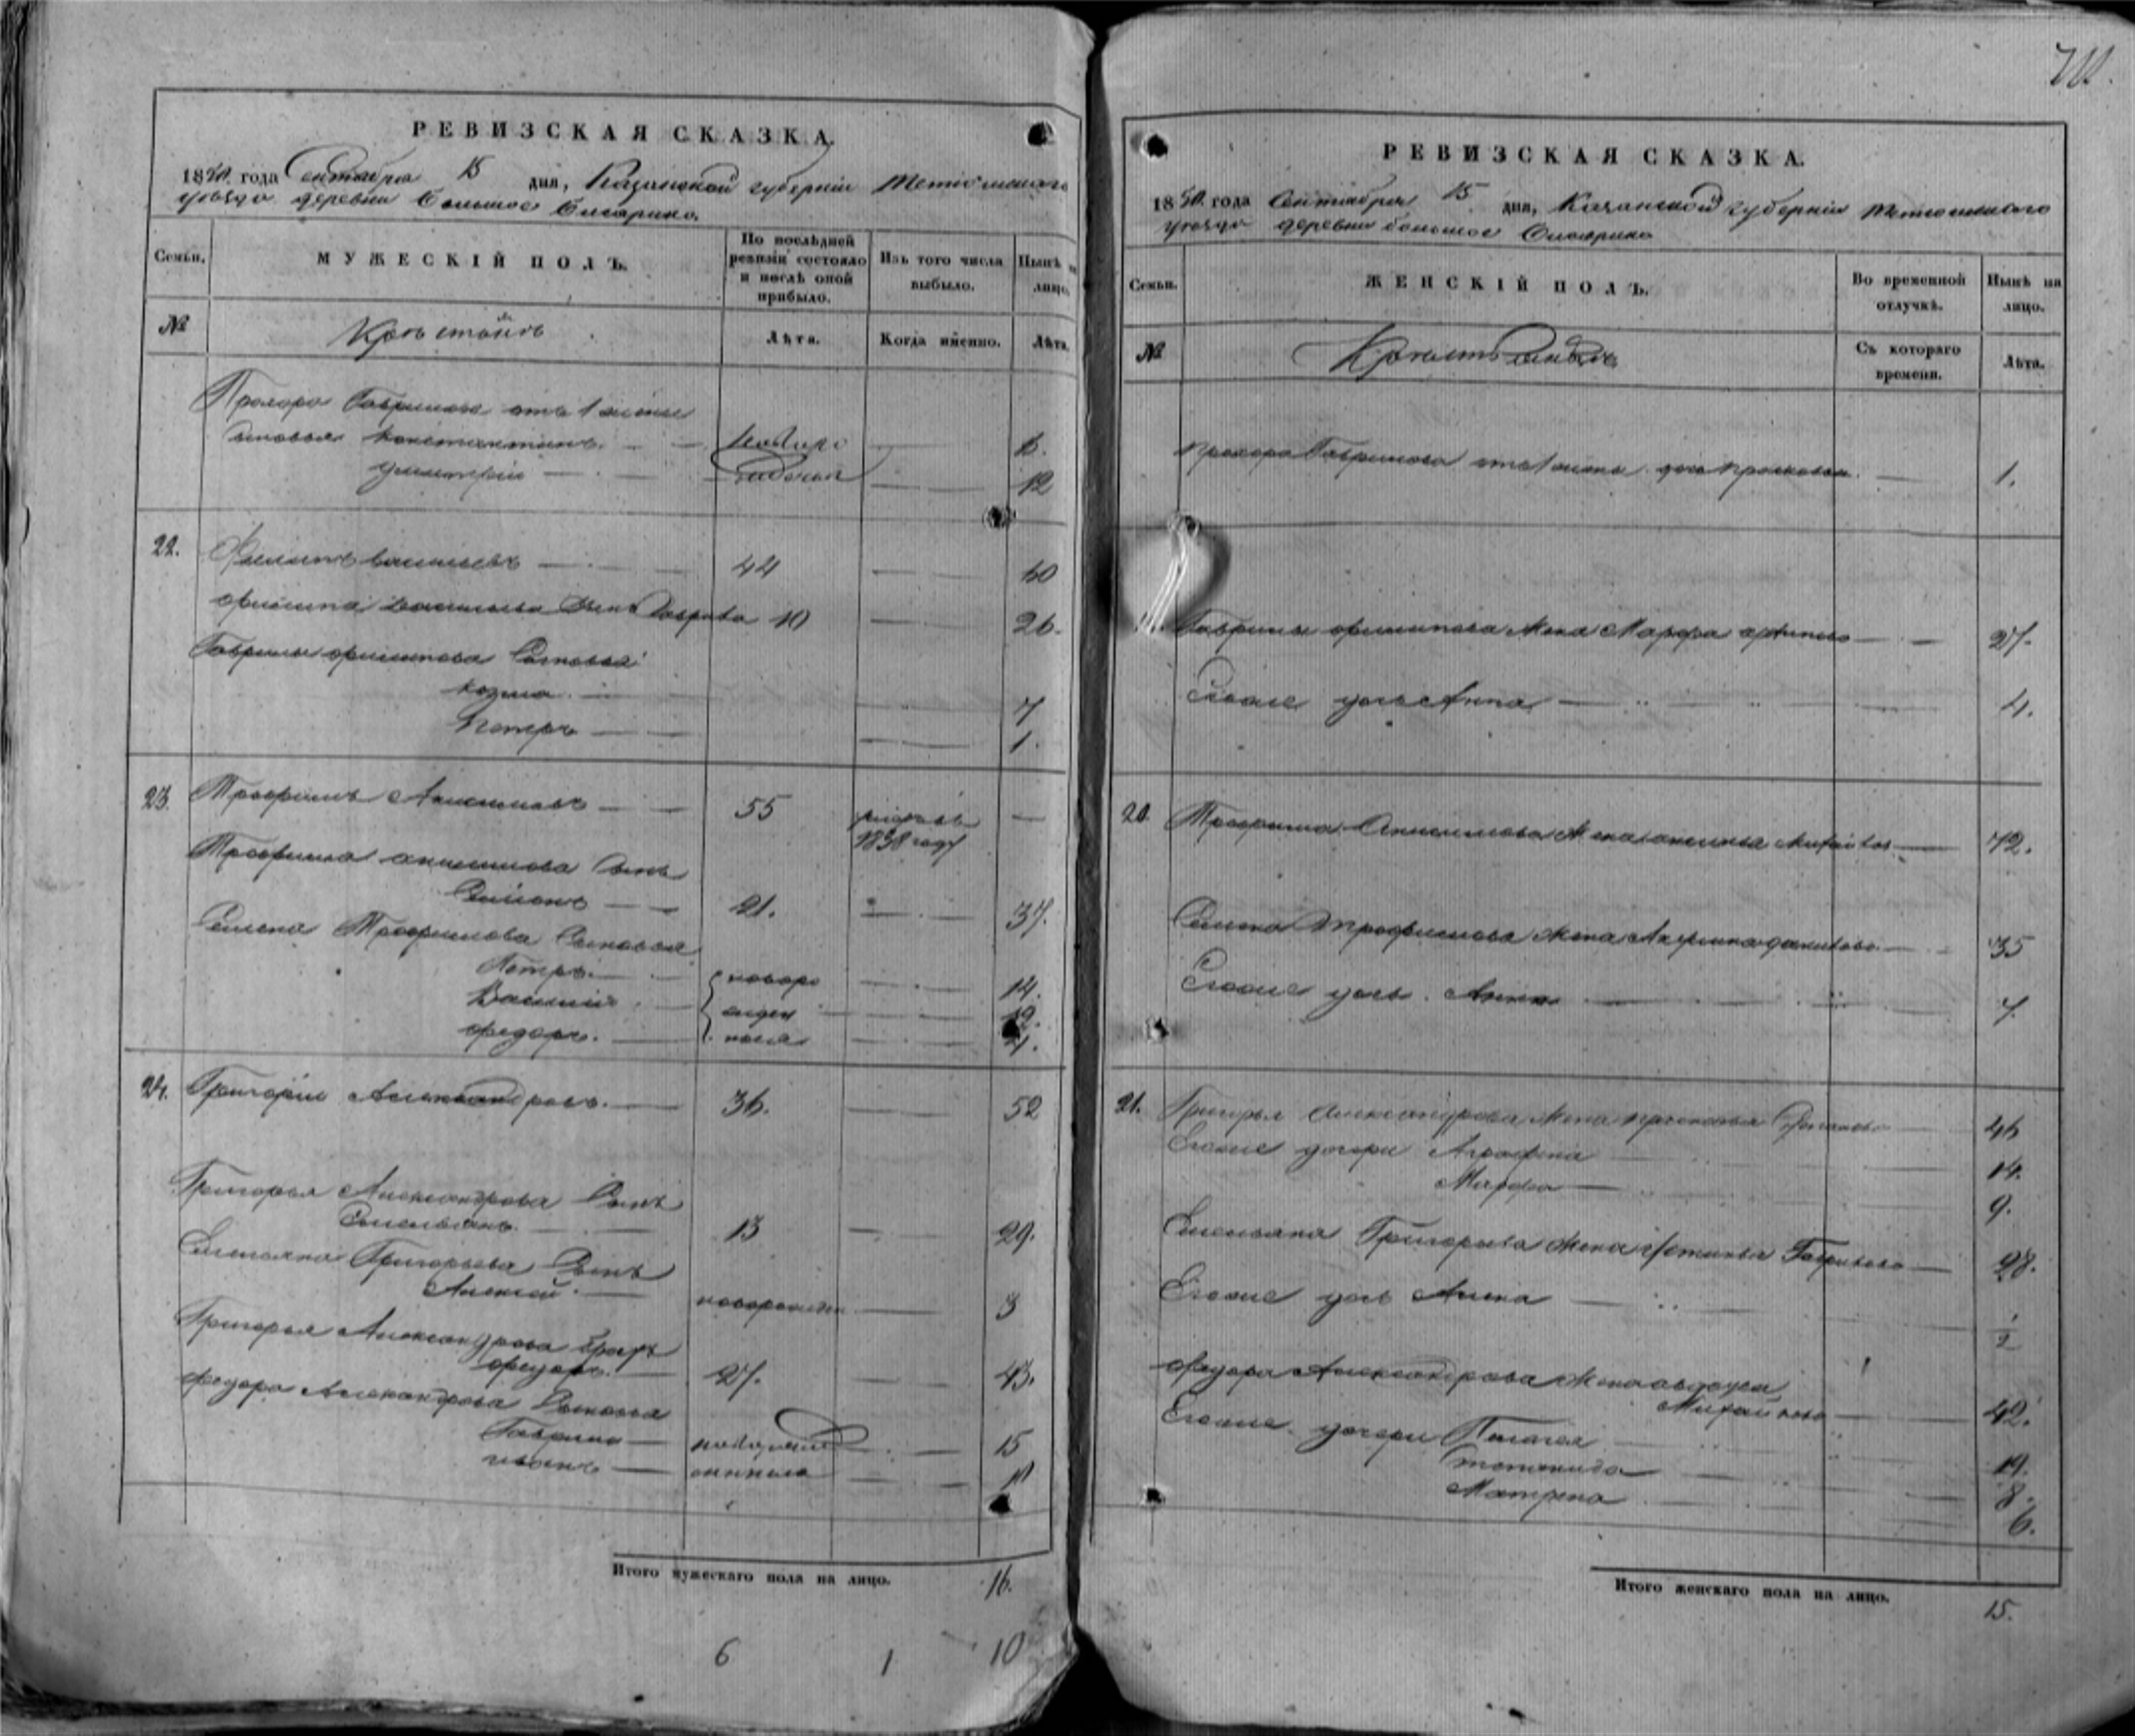 РЕВИЗСКАЯ СКАЗКА.
1850 года Сентября 15 дня, Казанской губернии Тетюшскаго
уезда деревни Большое
Семьи.
МУЖЕСКІЙ ПОЛЪ.
По послѣдней ревизіи состояло и послѣ оной прибыло.
Изъ того числа выбыло.
Нынѣ на лицо.
№
Лѣта.
Когда именно.
Лѣта.
Прохора Гаврилова отъ 1 жены
сыновья Константинъ
Дмитрій 12
22. Филипъ Васильевъ 44 60
Филипа Васильева сынъ Гаврила 10 26.
Гаврилы Филипова сыновья
Козма 7
Петръ 1.
23. Трофимъ Анисимовъ 55 умеръ въ 1838 году
Трофима Анисимова сынъ
Семенъ 21. 37.
Семена Трофимова сыновья
Петръ новоро 14.
Василий жден 12.
Федоръ ные 4.
24. Григорий Александровъ 36. 52
Григорья Александрова сынъ
Емельянъ 13 29.
Емельяна Григорьева сынъ
Алексей новорожден 3
Григорья Александрова братъ
Федоръ 27. 43.
Федора Александрова сыновья
Гаврила новорожде 15
Иванъ 11
Итого мужескаго пола на лицо. 16.
6 1 10
РЕВИЗСКАЯ СКАЗКА.
1850 года Сентября 15 дня, Казанской губернии Тетюшскаго
уезда деревни большое
Семьи.
ЖЕНСКІЙ ПОЛЪ.
Во временной отлучкѣ.
Нынѣ на лицо.
№
Съ котораго времени.
Лѣта.
Прохора Гаврилова отъ 1 жены дочь Прасковья 1.
Гаврилы Филипова жена Марфа 27.
Егоже дочь Анна 4.
20. Трофима Анисимова жена Аксинья Михайлова 72.
Семена Трофимова жена Акулина Данилова 35
Егоже дочь Анна 7.
21. Григорья Александрова жена Прасковья 46
Егоже дочери Аграфена 14.
Марфа 9.
Емельяна Григорьева жена Устинья Гаврилова 28.
Егоже дочь Анна 1/2
Федора Александрова жена Авдотья
Михайлова 42.
Егоже дочери Пелагея 19.
Степанида 8.
Матрена 6.
Итого женскаго пола на лицо. 15.